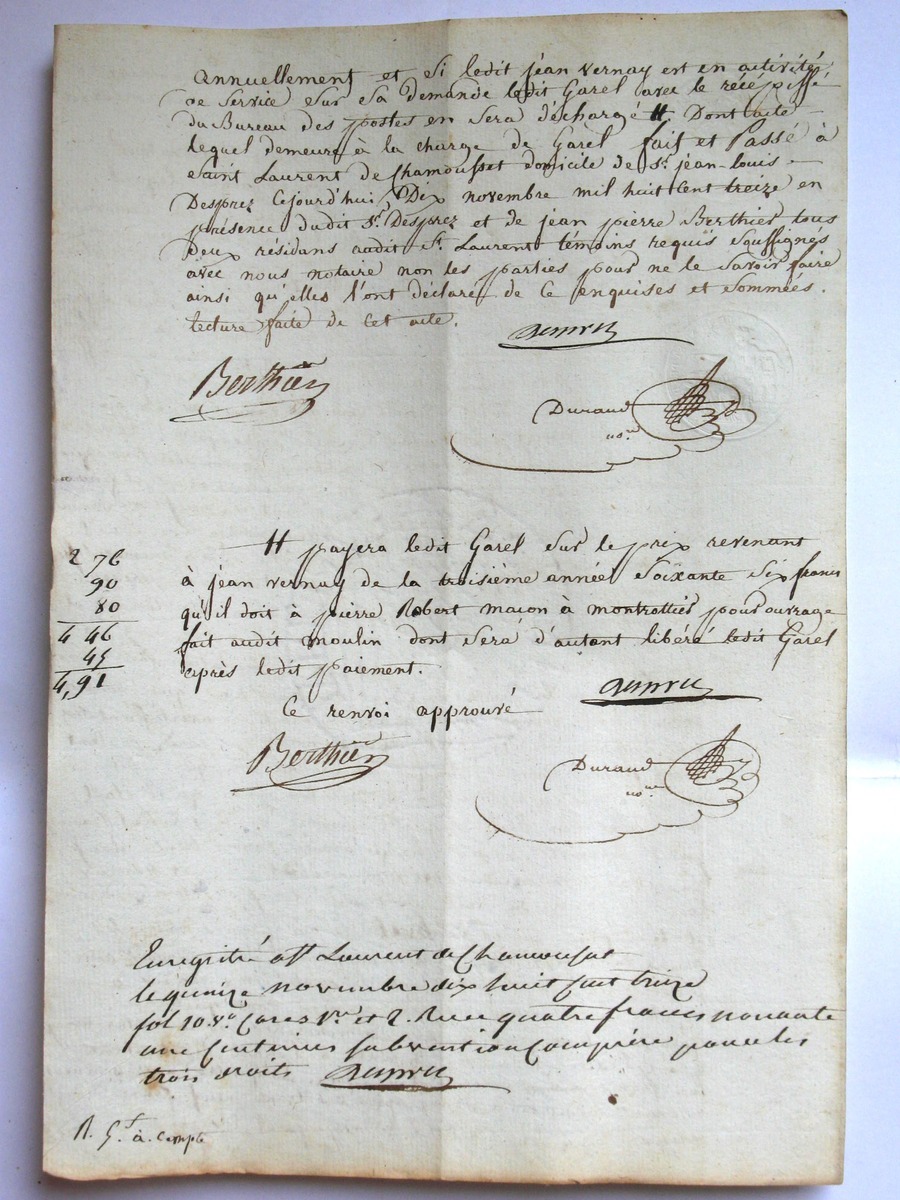 annuellement et si ledit jéan vernay est en activité
de service sur sa demande ledit Garel avec le récépissé
du Bureau des postes en sera déchargé # Dont acte
lequel demeure à la charge de Garel fait et Passé à
saint Laurent de chamousset domicile de Sr. jéan-louis
Desprez cejourd'hui, Dix novembre mil huit cent treize en
présence dudit Sr. Desprez et de jéan pierre Berthier tous
deux résidans audit St. Laurent témoins requis soussignés
avec nous notaire non les parties pour ne le savoir faire
ainsi qu'elles l'ont déclaré de ce enquises et sommées.
lecture faite de cet acte.
Berthier
Durand
nore
# payera ledit Garel sur le prix revenant
à jéan vernay de la troisième année soixante six francs
qu'il doit à pierre Robert macon à montrottier pour ouvrage
fait audit moulin dont sera d'autant libéré ledit Garel
après ledit paiement.
2 76
90
80
4 46
45
4,91
Ce renvoi approuvé
Berthier
Durand
nore
Enregitré a St Laurent de Chamousset
le quinze novembre dix huit cent treize
fol 108 vo Cases 1re et 2. Reçu quatre francs nonante
une centimes subvention comprise pour les
trois droits
R. Gt. à compte